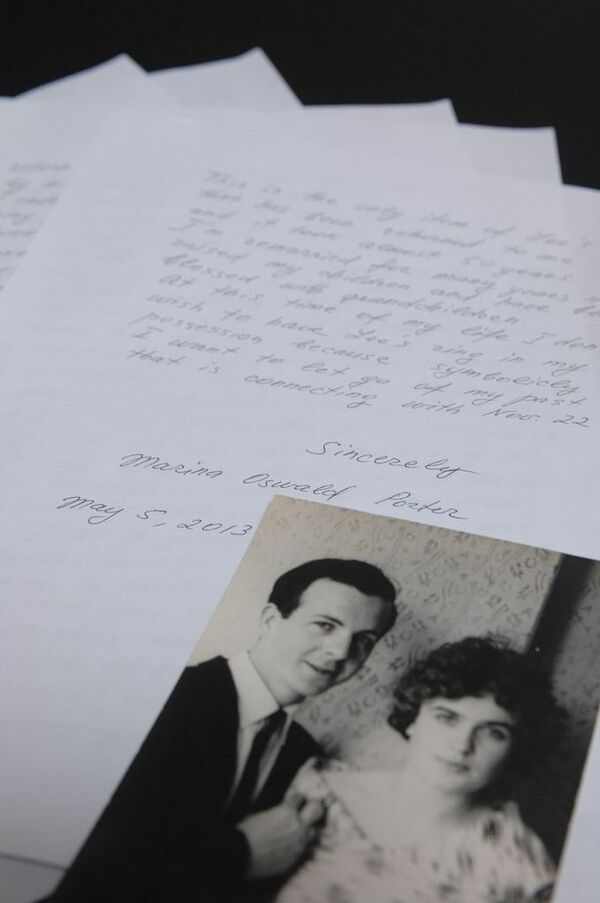 This is the only item of Lee's
that has been returned to me
and it took almost 50 years
I'm remarried for many years
raised my children and have be
blessed with grandchildren.
At this time of my life I don
wish to have Lee's ring in my
possession because symbolicly
I want to let go of my past
that is connecting with Nov. 22
Sincerely
Marina Oswald Porter
May 5, 2013